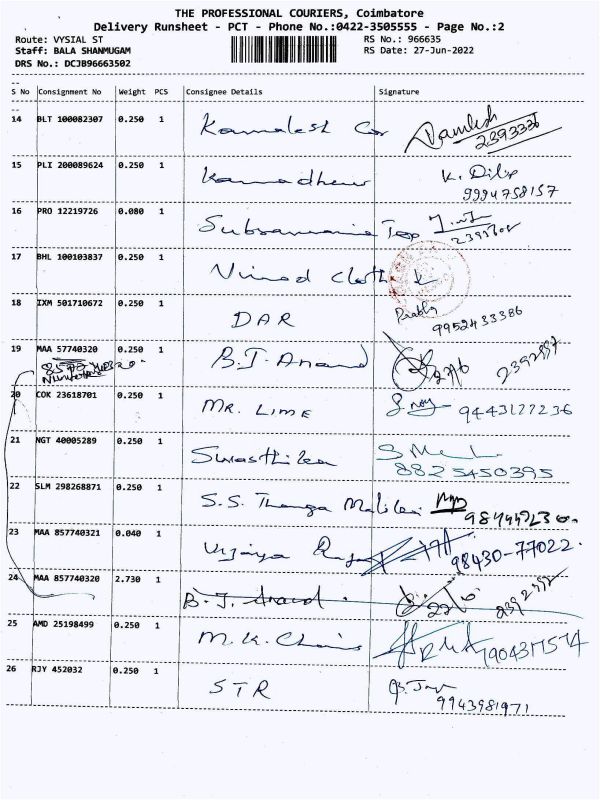 THE PROFESSIONAL COURIERS, Coimbatore
Delivery Runsheet - PCT - Phone No.:0422-3505555 - Page No.:2
Route: VYSIAL ST RS No.: 966635
Staff: BALA SHANMUGAM RS Date: 27-Jun-2022
DRS No.: DCJB96663502
S No Consignment No Weight PCS Consignee Details Signature
14 BLT 100082307 0.250 1 Kamalesh Cor 2393336
15 PLI 200089624 0.250 1 Kamadhenu K. Dilip
9994758157
16 PRO 12219726 0.080 1 Subramania Tex
17 BHL 100103837 0.250 1 Vinod Cloth
18 IXM 501710672 0.250 1 DAR Prabhu
9952433386
19 MAA 57740320 0.250 1 B.J. Anand 2392557
20 COK 23618701 0.250 1 MR. LIME 9443177236
21 NGT 40005289 0.250 1 Swasthika
8825450395
22 SLM 298268871 0.250 1 S.S. Thanga Maligai
23 MAA 857740321 0.040 1 Vijaya 98430-77022.
24 MAA 857740320 2.730 1 B.J. Anand.
25 AMD 25198499 0.250 1 M.K. Chains
26 RJY 452032 0.250 1 STR
9943981971